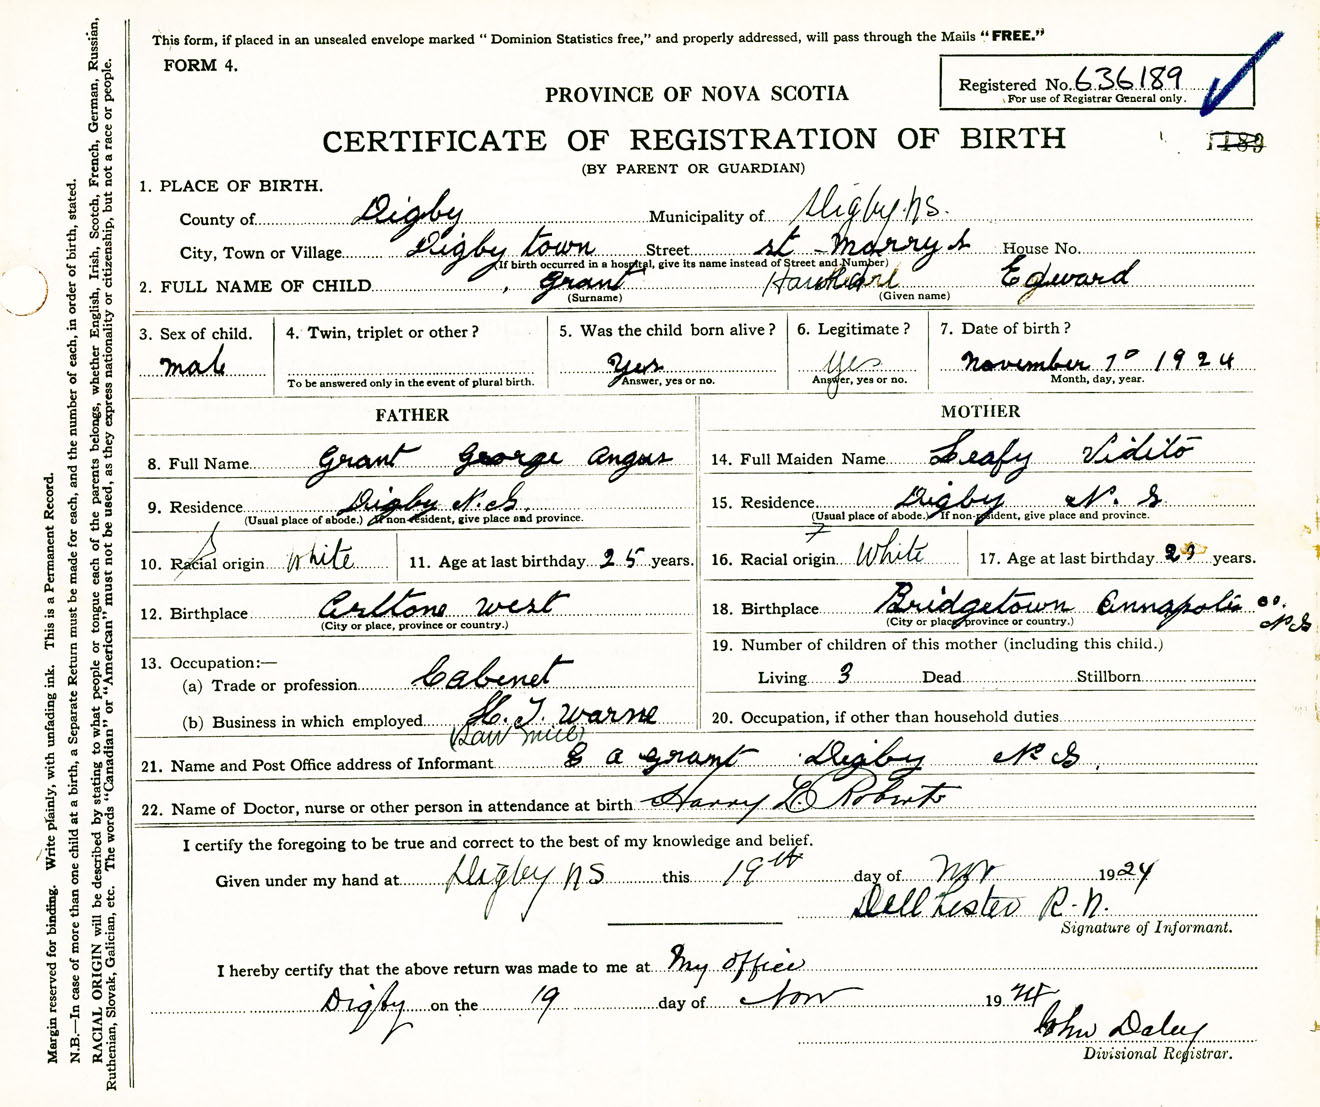 This form, if placed in an unsealed envelope marked “ Dominion Statistics free,” and properly addressed, will pass through the Mails “FREE.”
FORM 4.
Registered No. 636189
For use of Registrar General only.
PROVINCE OF NOVA SCOTIA
CERTIFICATE OF REGISTRATION OF BIRTH
189
(BY PARENT OR GUARDIAN)
1. PLACE OF BIRTH.
County of Digby Municipality of Digby NS.
City, Town or Village Digby town Street st - marrys House No.
(If birth occurred in a hospital, give its name instead of Street and Number)
2. FULL NAME OF CHILD Grant Edward
(Surname) (Given name)
3. Sex of child. 4. Twin, triplet or other? 5. Was the child born alive? 6. Legitimate? 7. Date of birth?
male Yes yes November 1924
To be answered only in the event of plural birth. Answer, yes or no. Answer, yes or no. Month, day, year.
FATHER MOTHER
8. Full Name Grant George Angus 14. Full Maiden Name Leafy Vidito
9. Residence Digby N.S. 15. Residence Digby N.S
(Usual place of abode.) If non-resident, give place and province. (Usual place of abode.) If non-resident, give place and province.
10. Racial origin White 11. Age at last birthday 25 years. 16. Racial origin White 17. Age at last birthday years.
12. Birthplace Arltone west 18. Birthplace Bridgetown Annapolis co. N.S
(City or place, province or country.) (City or place, province or country.)
13. Occupation:— 19. Number of children of this mother (including this child.)
(a) Trade or profession Cabenet Living 3 Dead Stillborn
(b) Business in which employed H. T. Warne 20. Occupation, if other than household duties
(Saw mill)
21. Name and Post Office address of Informant G A Grant Digby N S.
22. Name of Doctor, nurse or other person in attendance at birth Harry L. Roberts
I certify the foregoing to be true and correct to the best of my knowledge and belief.
Given under my hand at Digby NS this 19th day of Nov 1924
Dell Lester R.N.
Signature of Informant.
I hereby certify that the above return was made to me at My office
Digby on the 19 day of Nov 1924
John Daley
Divisional Registrar.
Margin reserved for binding. Write plainly, with unfading ink. This is a Permanent Record.
N.B.—In case of more than one child at a birth, a Separate Return must be made for each, and the number of each, in order of birth, stated.
RACIAL ORIGIN will be described by stating to what people or tongue each of the parents belongs, whether English, Irish, Scotch, French, German, Russian,
Ruthenian, Slovak, Galician, etc. The words “Canadian” or “American” must not be used, as they express nationality or citizenship, but not a race or people.